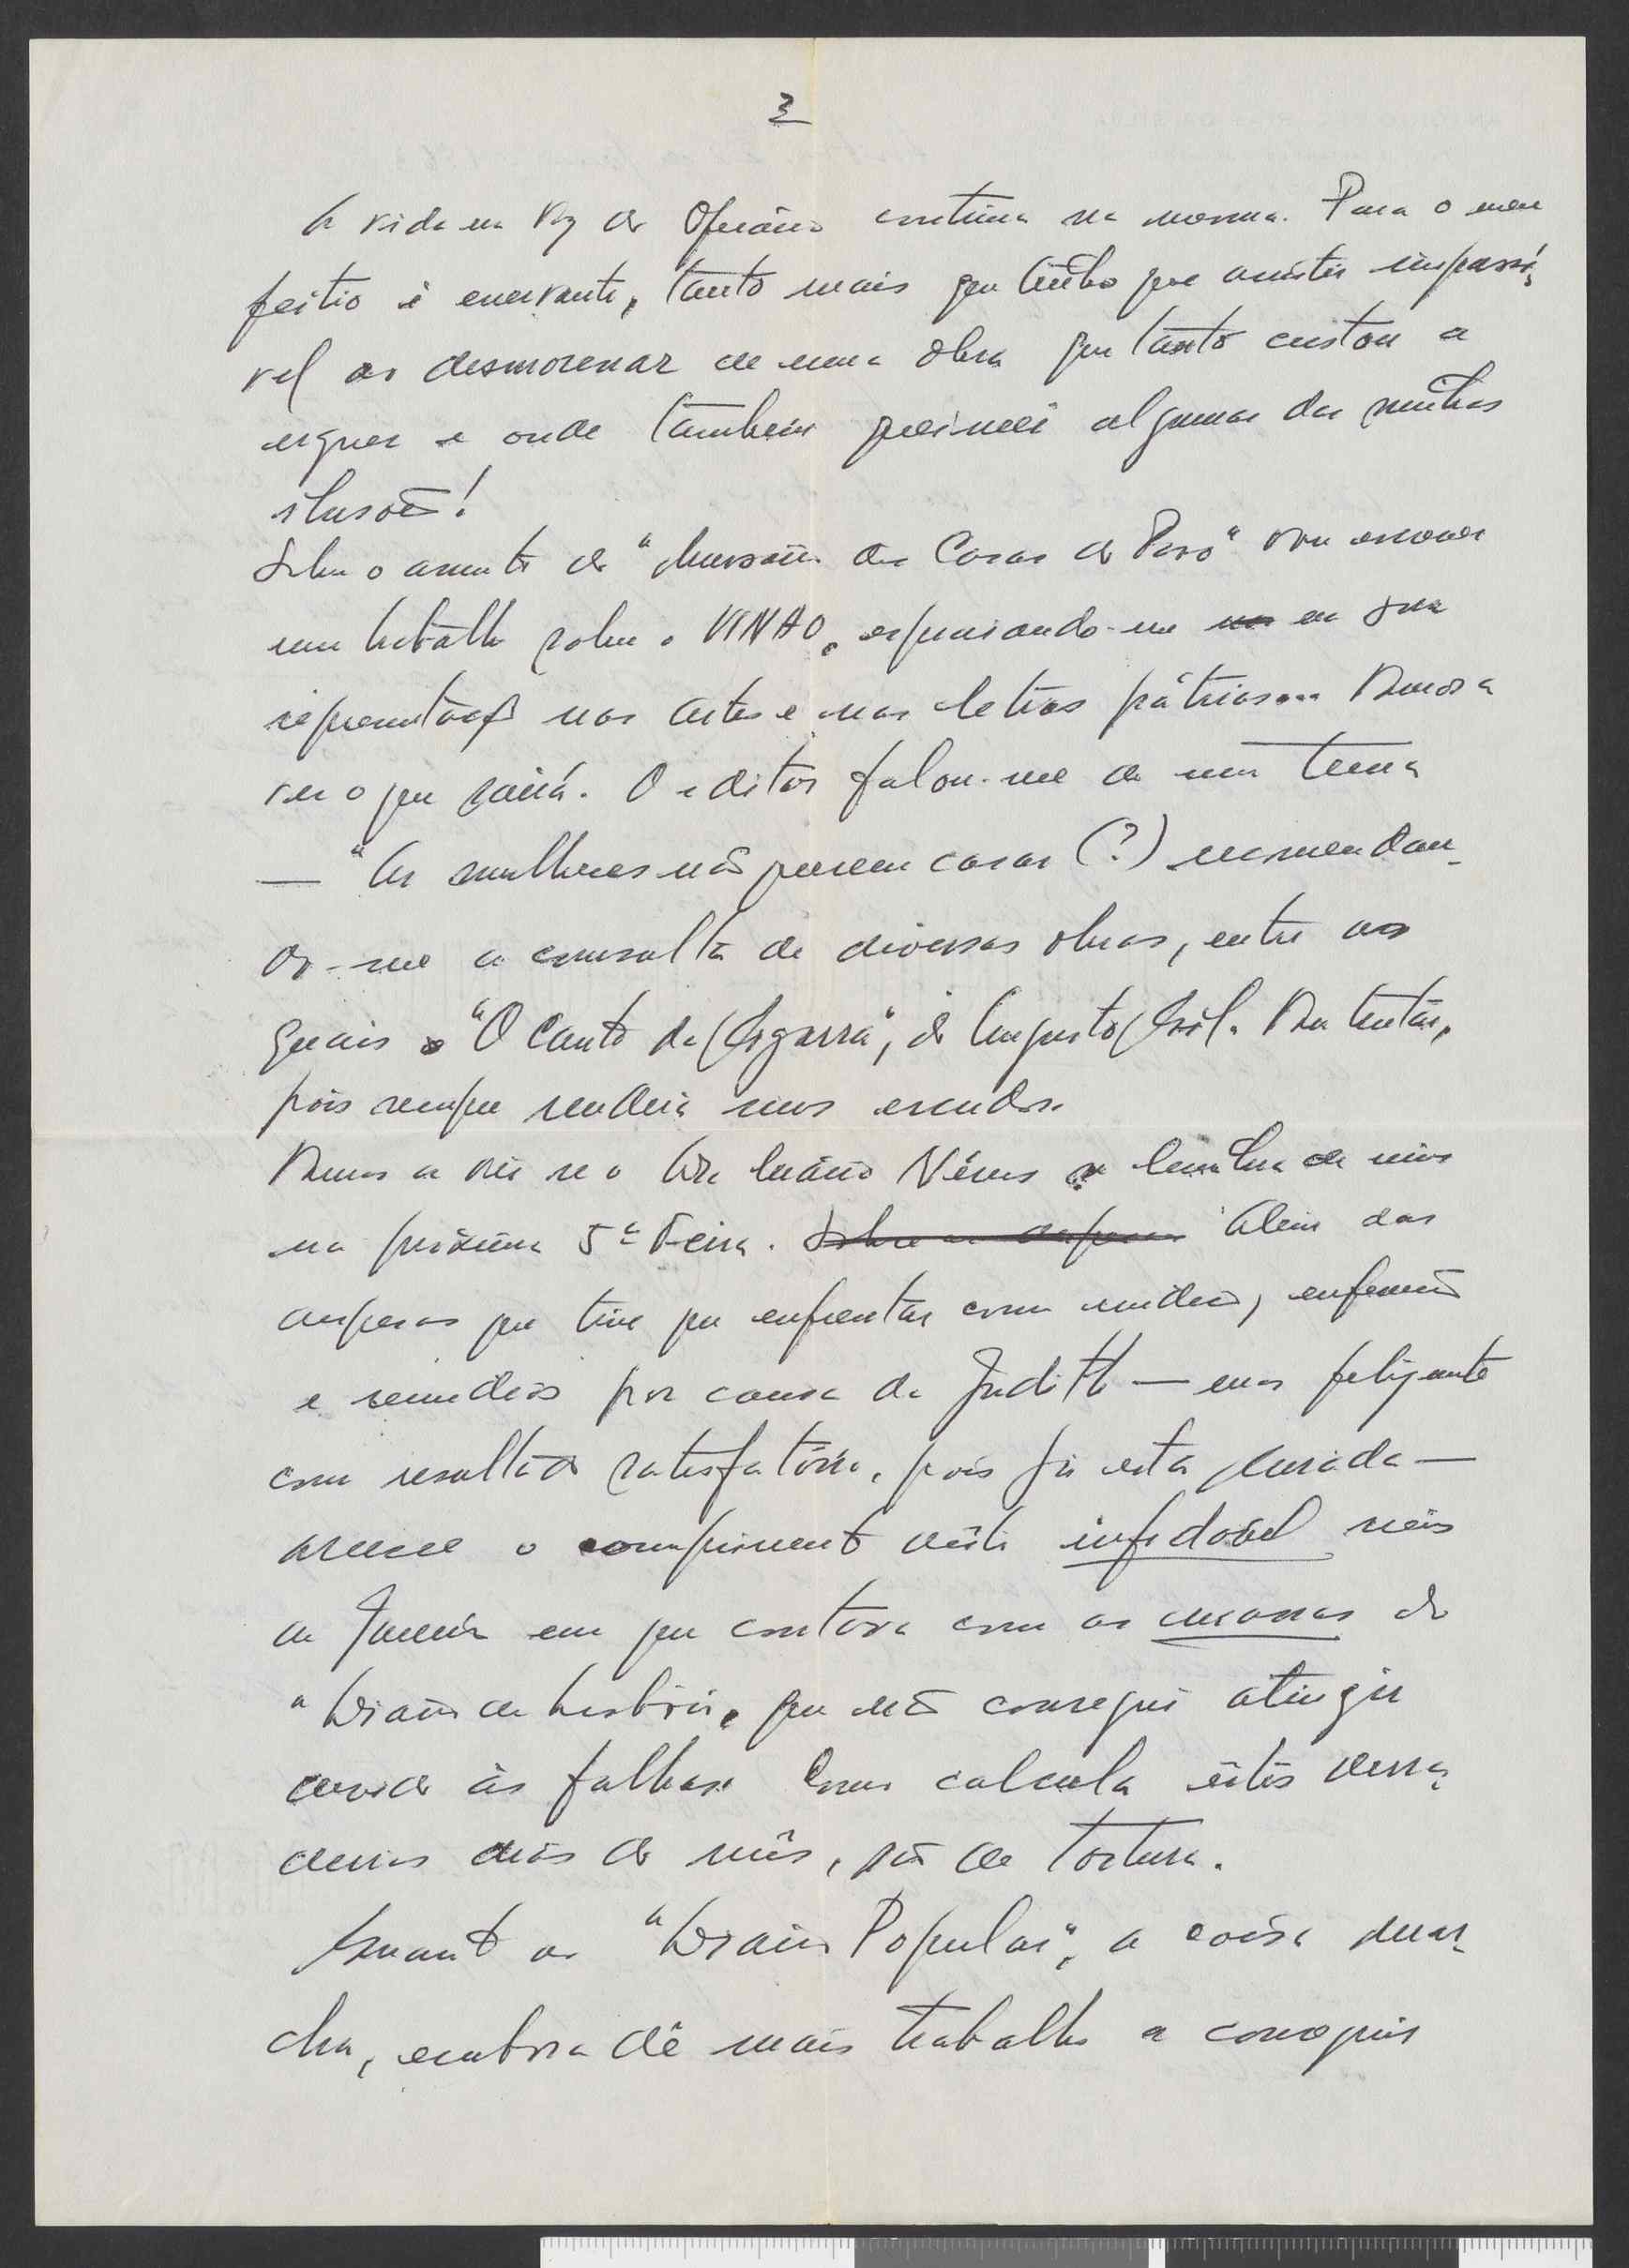 3
A vida na Voz do Operário continua na mesma. Para o meu
feitio é enervante, tanto mais que tenho que assistir impassí-
vel ao desmoronar de uma obra que tanto custou a
erguer e onde também queimei algumas das minhas
ilusões!
Sobre o assunto do "das Casas do Povo" vou escrever
um trabalho sobre o VINHO, na sua
representação nas artes e nas letras pátrias... Vamos a
ver o que sairá. O editor falou-me de um tema
— "As mulheres não querem casar (?) recomendan-
do-me a consulta de diversas obras, entre as
quais o "O Canto da Cigarra", de Augusto Gil. Vou tentar,
pois sempre renderá uns escudos.
Vamos a ver se o Mário Neves se lembra de mim
na próxima 5ª Feira. Além das
despesas que tive que enfrentar com médico, enfermeiro
e remédios por causa da Judith — mas felizmente
com resultado satisfatório, pois já está curada —
acresce o comprimento deste infindável mês
de Janeiro em que contava com as massas do
"Diário de Lisboa", que não consegui atingir
devido às falhas. Como calcula estes derra-
deiros dias do mês, são de tortura.
Quanto ao "Diário Popular", a coisa mar-
cha, embora dê mais trabalho a conseguir